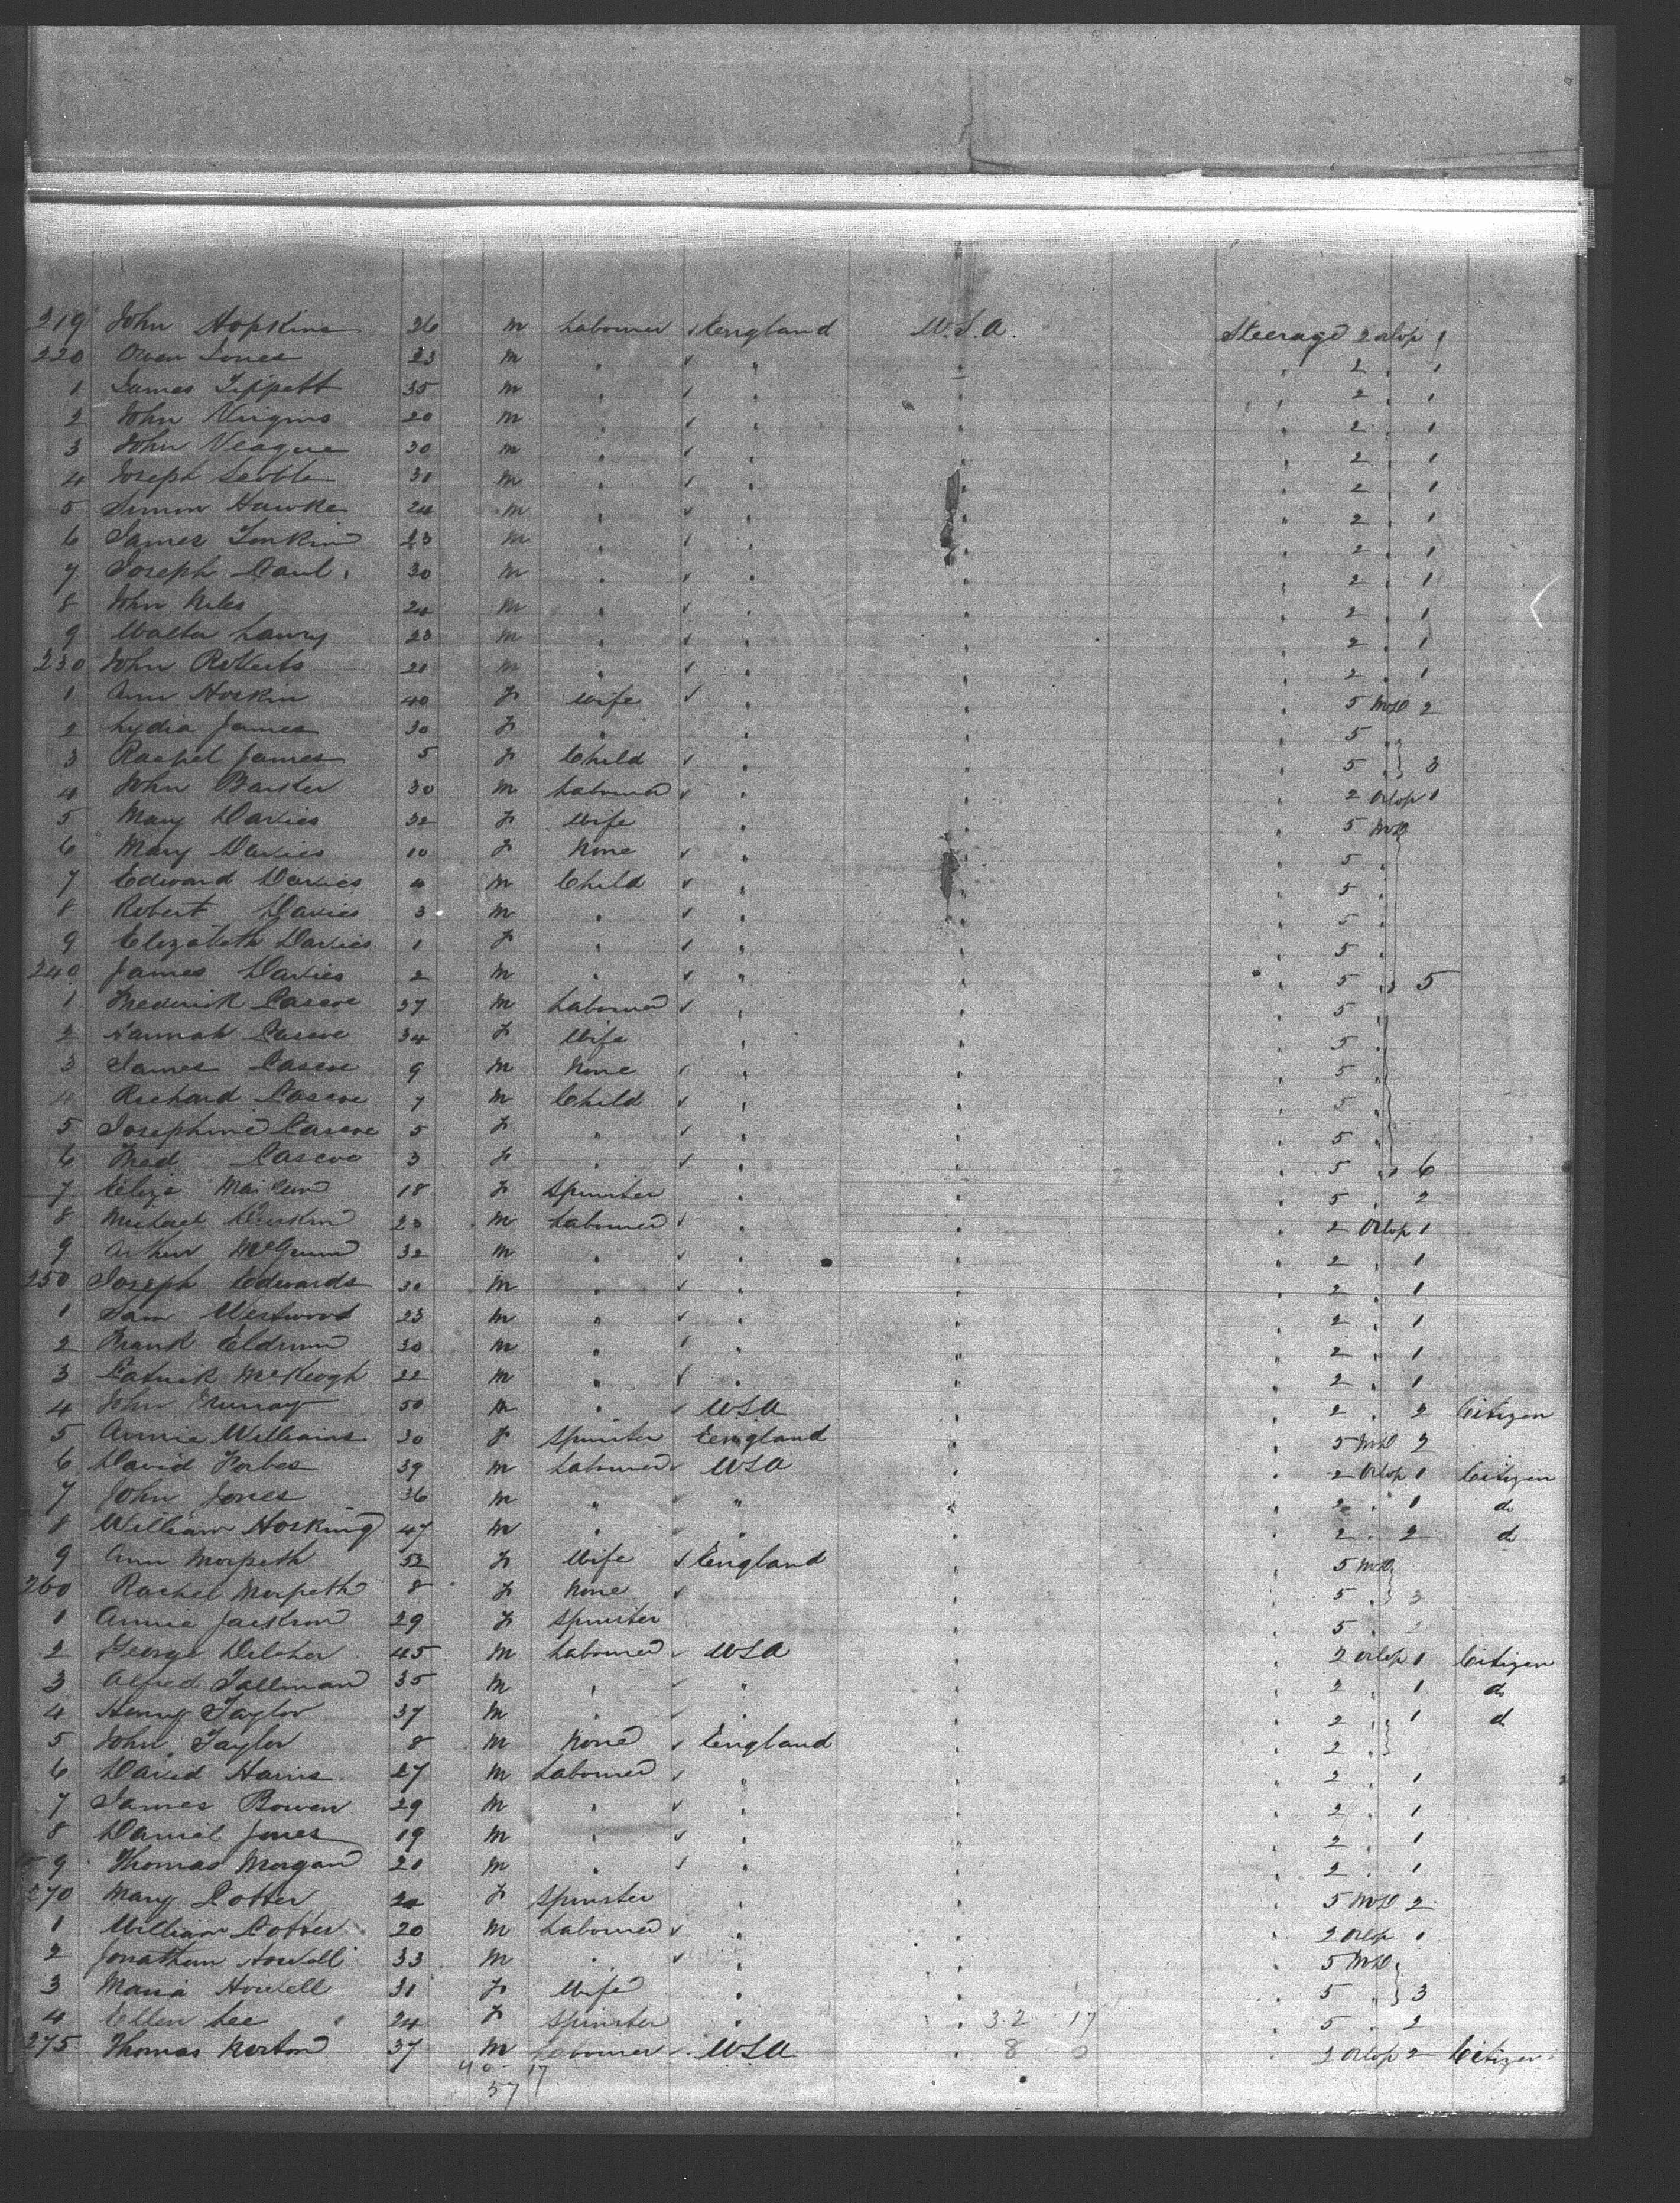 219 John Hopkins 26 m Labourer ✓ England U.S.A. Steerage 2 orlop 1
220 Owen Jones 23 m " ✓ " " " 2 " 1
1 James Tippett 35 m " ✓ " " " 2 " 1
2 John 20 m " ✓ " " " 2 " 1
3 John Veague 30 m " ✓ " " " 2 " 1
4 Joseph 30 m " ✓ " " " 2 " 1
5 Simon Hawke 24 m " ✓ " " " 2 " 1
6 James Jenkin 23 m " ✓ " " " 2 " 1
7 Joseph Paul 30 m " ✓ " " " 2 " 1
8 John 24 m " ✓ " " " 2 " 1
9 Walter Lawry 23 m " ✓ " " " 2 " 1
230 John Roberts 21 m " ✓ " " " 2 " 1
1 Ann Hoskin 40 f Wife ✓ " " " 5 2
2 Lydia James 30 f " " " " 5 "
3 Rachel James 5 f Child ✓ " " " 5 " 3
4 John 30 m Labourer ✓ " " " 2 Orlop 1
5 Mary Davies 32 f Wife " " " 5
6 Mary Davies 10 f None ✓ " " " 5 "
7 Edward Davies 4 m Child ✓ " " " 5 "
8 Robert Davies 3 m " ✓ " " " 5 "
9 Elizabeth Davies 1 f " ✓ " " " 5 "
240 James Davies 2 m " ✓ " " " 5 " 5
1 Frederick Pascoe 37 m Labourer ✓ " " " 5 "
2 Hannah Pascoe 34 f Wife " " " 5 "
3 James Pascoe 9 m None ✓ " " " 5 "
4 Richard Pascoe 7 m Child ✓ " " " 5 "
5 Josephine Pascoe 5 f " ✓ " " " 5 "
6 Fred Pascoe 3 f " ✓ " " " 5 " 6
7 Eliza 18 f Spinster " " " 5 " 2
8 Michael 23 m Labourer ✓ " " " 2 Orlop 1
9 Arthur 32 m " ✓ " " " 2 " 1
250 Joseph Edwards 30 m " ✓ " " " 2 " 1
1 Sam Westwood 23 m " ✓ " " " 2 " 1
2 Frank 30 m " ✓ " " " 2 " 1
3 Patrick McKeogh 22 m " ✓ " " " 2 " 1
4 John Murray 50 m " ✓ USA " " 2 " 2 Citizen
5 Annie Williams 30 f Spinster England " " 5 2
6 David Forbes 39 m Labourer ✓ USA " " 2 Orlop 1 Citizen
7 John Jones 36 m " ✓ " " " 2 " 1 do
8 William Hosking 47 m " ✓ " " " 2 " 2 do
9 Ann Morpeth 52 f Wife ✓ England " " 5
260 Rachel Morpeth 8 f None ✓ " " 5 " 3
1 Annie Jackson 29 f Spinster " " 5 " 2
2 George 45 m Labourer ✓ USA " " 2 Orlop 1 Citizen
3 Alfred Tallman 35 m " ✓ " " " 2 " 1 do
4 Henry Taylor 37 m " ✓ " " " 2 " 1 do
5 John Taylor 8 m None ✓ England " " 2 "
6 David Harris 27 m Labourer ✓ " " " 2 " 1
7 James Bowen 29 m " ✓ " " " 2 " 1
8 Daniel Jones 19 m " ✓ " " " 2 " 1
9 Thomas Morgan 20 m " ✓ " " " 2 " 1
270 Mary Cotter f Spinster " " 5 2
1 William Cotter 20 m Labourer ✓ " " " 2 Orlop 1
2 Jonathan Howell 33 m " ✓ " " " 5
3 Maria Howell 31 f Wife " " " 5 " 3
4 Ellen Lee 24 f Spinster " " 32 17 5 " 2
275 Thomas Norton 37 m Labourer ✓ USA " 8 0 " 2 Orlop 2 Citizen
40 17
57